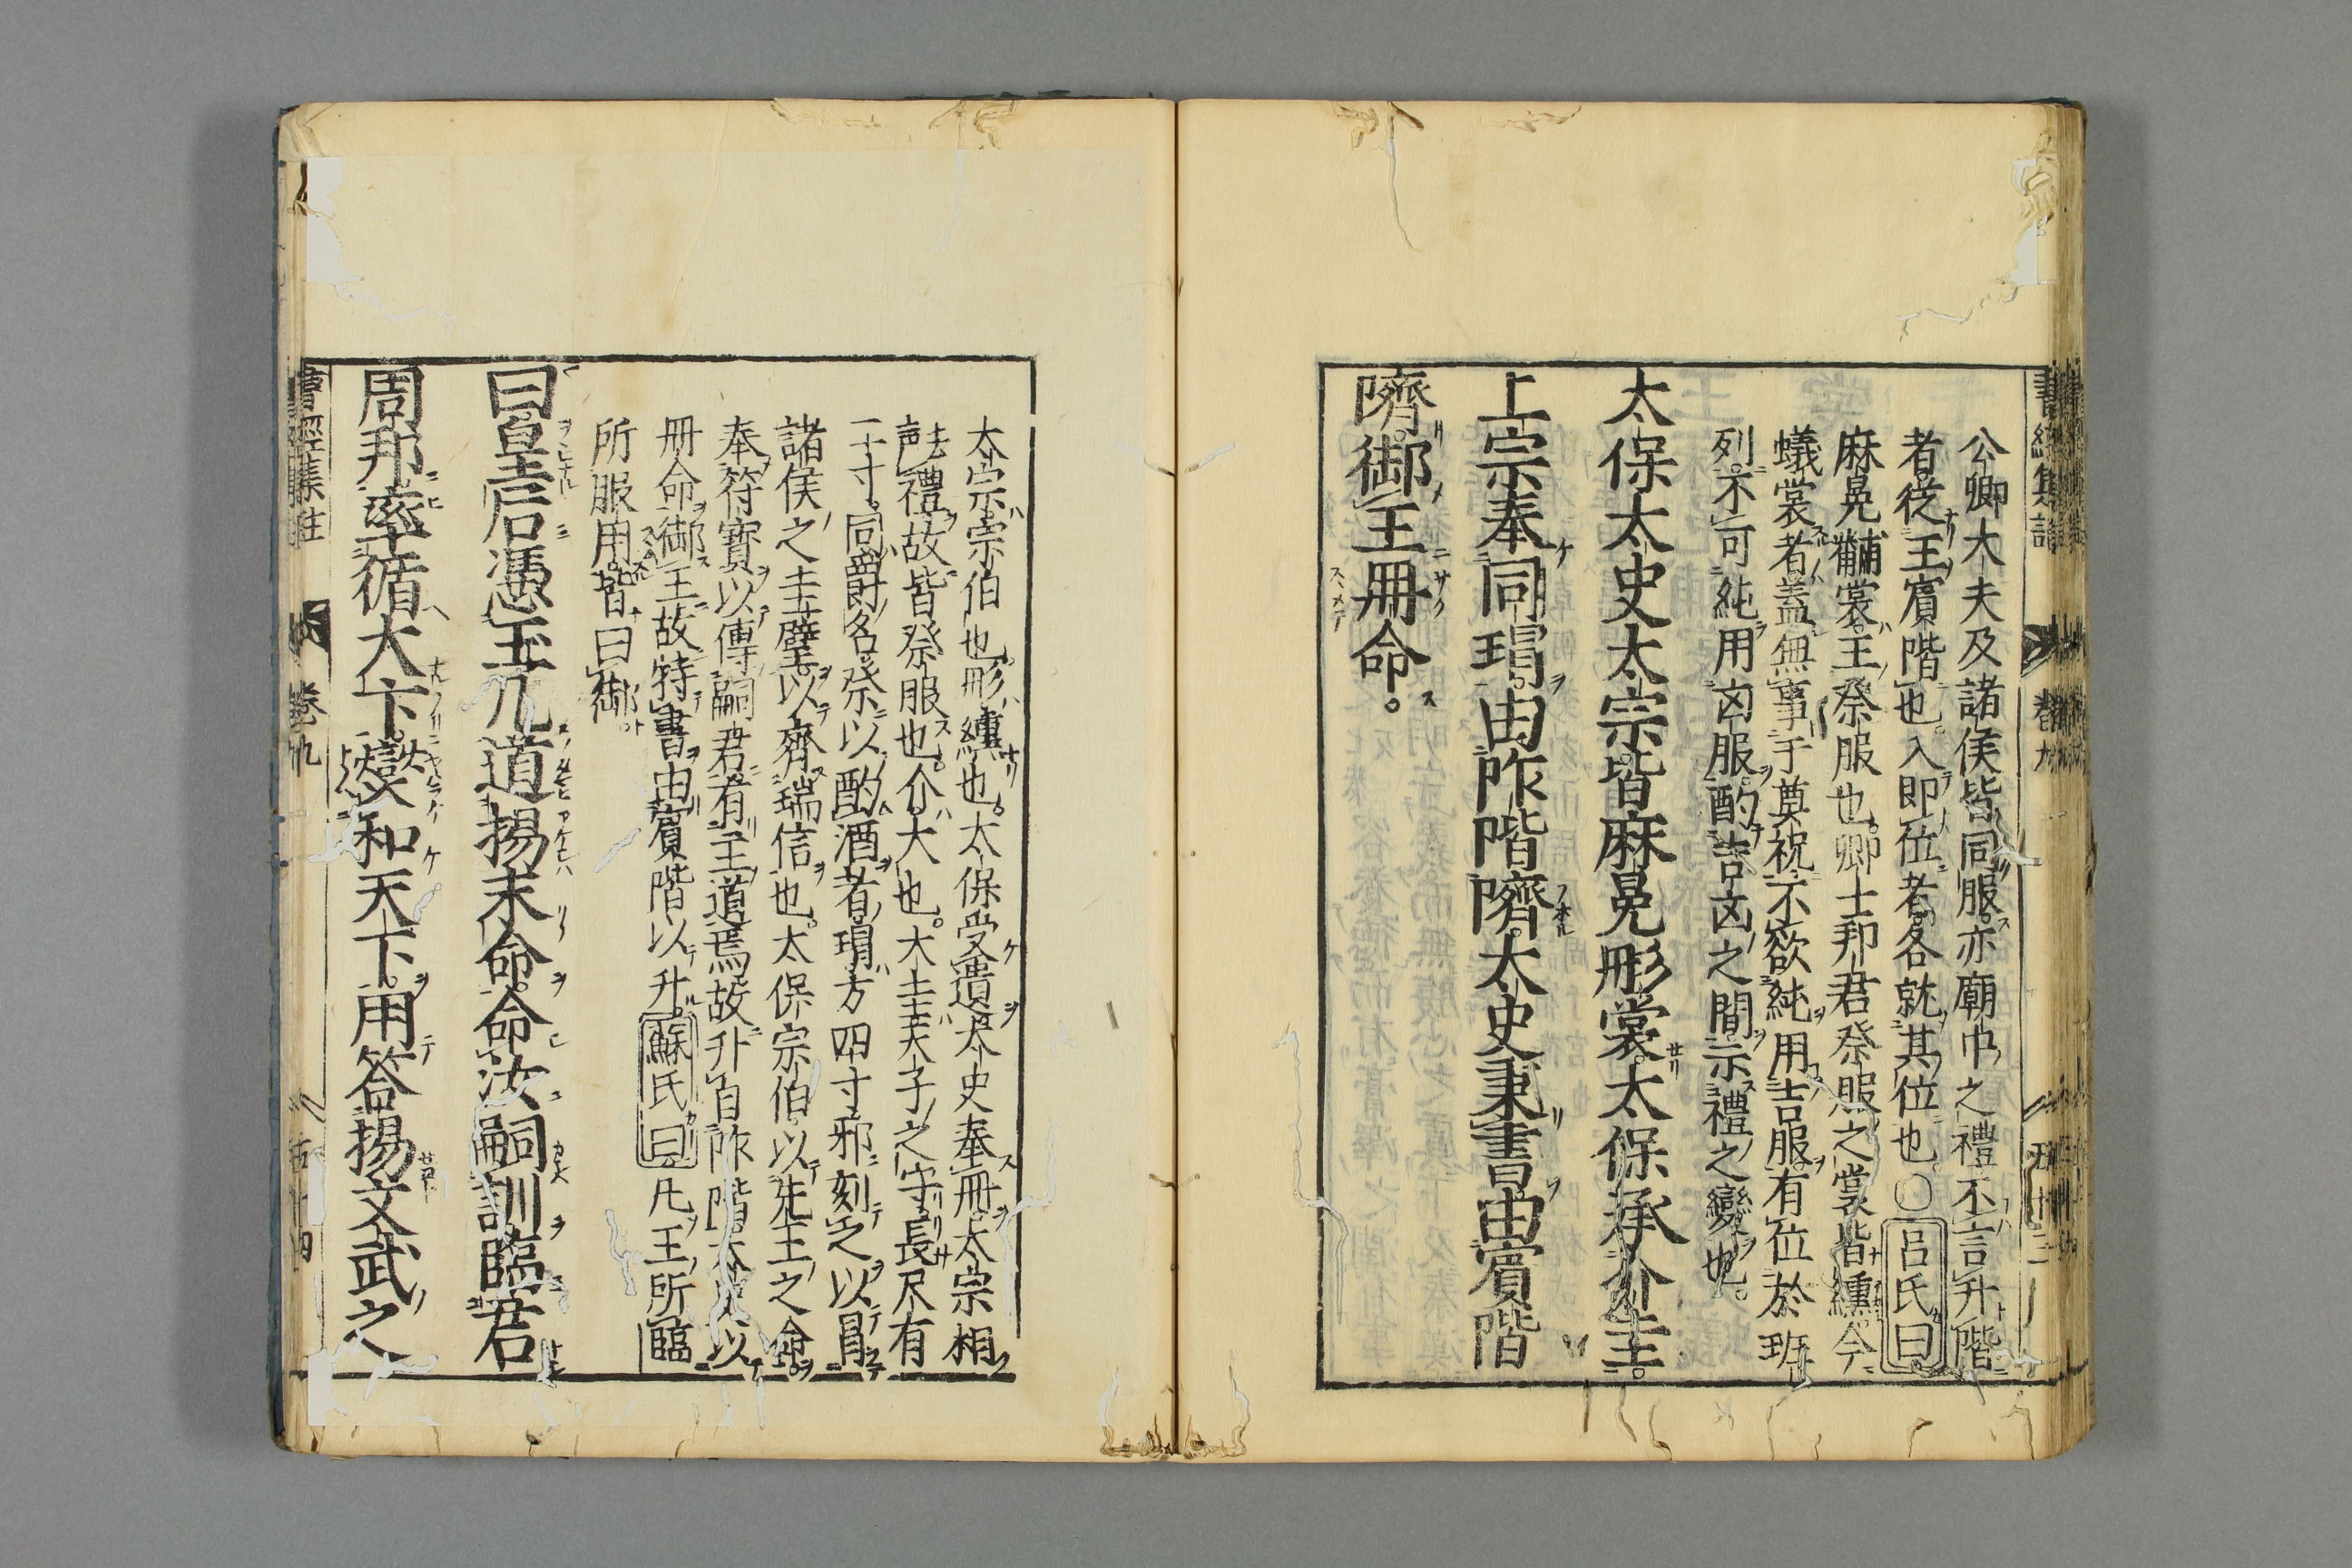 書經集註 卷九
公卿大夫及諸侯皆同服亦廟中之禮不言升階
者從王賓階也入即位者各就其位也〇呂氏曰
麻冕黼裳王祭服也卿士邦君祭服之裳皆纁今
蟻裳者蓋無事于奠祝不欲純用吉服有位於班
列不可純用凶服酌吉凶之間示禮之變也
太保太史太宗皆麻冕彤裳太保承介圭
上宗奉同瑁由阼階隮太史秉書由賓階
隮御王冊命
太宗宗伯也彤纁也太保受遺太史奉冊太宗相
禮故皆祭服也介大也大圭天子之守長尺有
二寸同爵名祭以酌酒者瑁方四寸邪刻之以冒
諸侯之圭璧以齊瑞信也太保宗伯以先王之命
奉符寶以傳嗣君有主道焉故升自阼階太史以
冊命御王故特書由賓階以升蘇氏曰凡王所臨
所服用皆曰御
曰皇后憑玉几道揚末命命汝嗣訓臨君
周邦率循大卞燮和天下用答揚文武之
書經集註 卷九 五十四